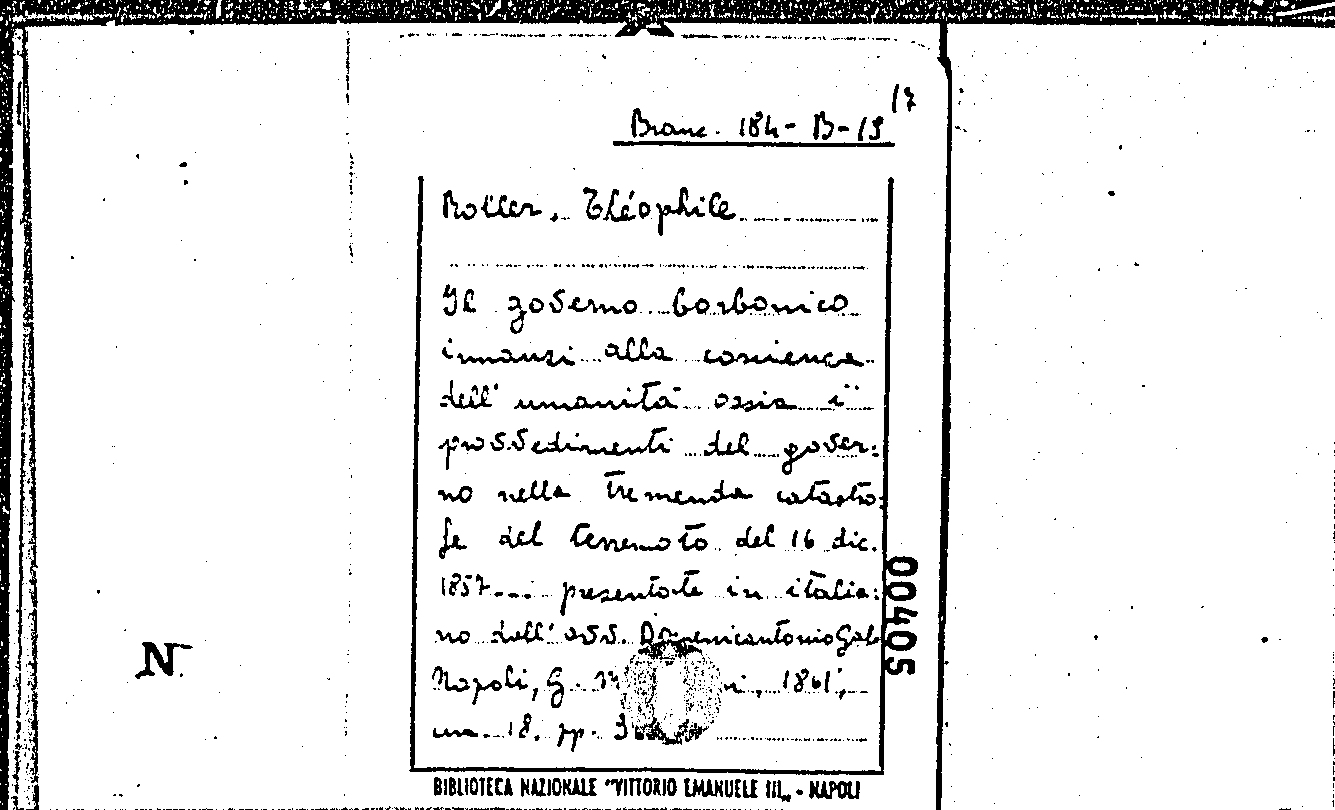 17
Branc. 184- B-19
Roller, Théophile
Il governo borbonico
innanzi alla coscienza
dell'umanità ossia i
provvedimenti del gover=
no nella tremenda catastro=
fe del terremoto del 16 dic.
1857... presentate in italia=
no dall'avv. Domenicantonio Gal
Napoli, G. 1861,
cm. 18. pp.
BIBLIOTECA NAZIONALE "VITTORIO EMANUELE III„ - NAPOLI
00405
N